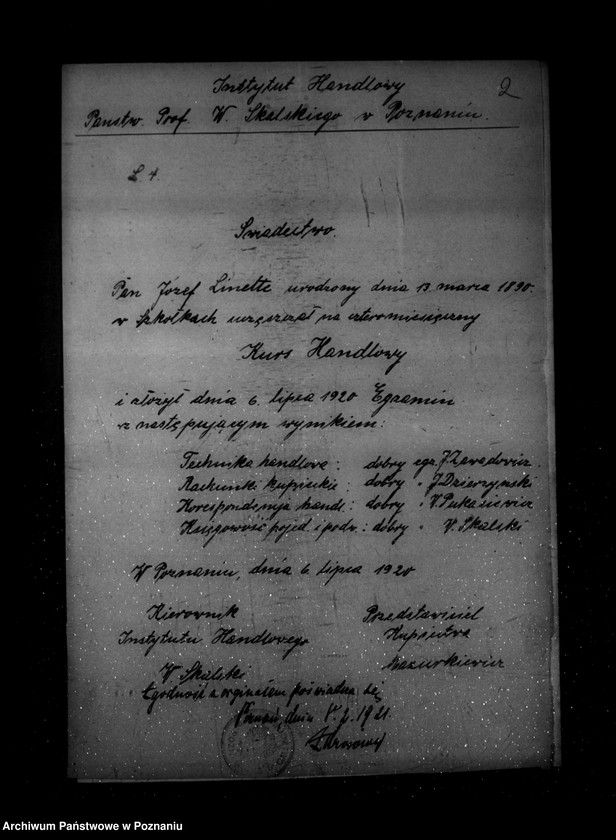 Instytut Handlowy
2
Państw. Prof. W. Skalskiego w Poznaniu.
L. 4.
Swiadectwo.
Pan Józef Linette urodzony dnia 13 marca 1890.
w Szkołkach uczęszczał na czteromiesięczny
Kurs Handlowy
i złożył dnia 6. lipca 1920 Egzamin
z następującym wynikiem:
Technika handlowa: dobry egz. J. Zawadowicz.
Rachunki kupieckie: dobry " J. Dzierzynski
Korespondencja handl.: dobry "
Księgowość pojed. i podw.: dobry " W. Skalski
W Poznaniu, dnia 6. lipca 1920
Kierownik
Przedstawiciel
Instytutu Handlowego
Kupiectwa
W Skalski
Mazurkiewicz
Zgodność z orginałem poświadcza się
Poznań, dnia 1921.
Archiwum Państwowe w Poznaniu